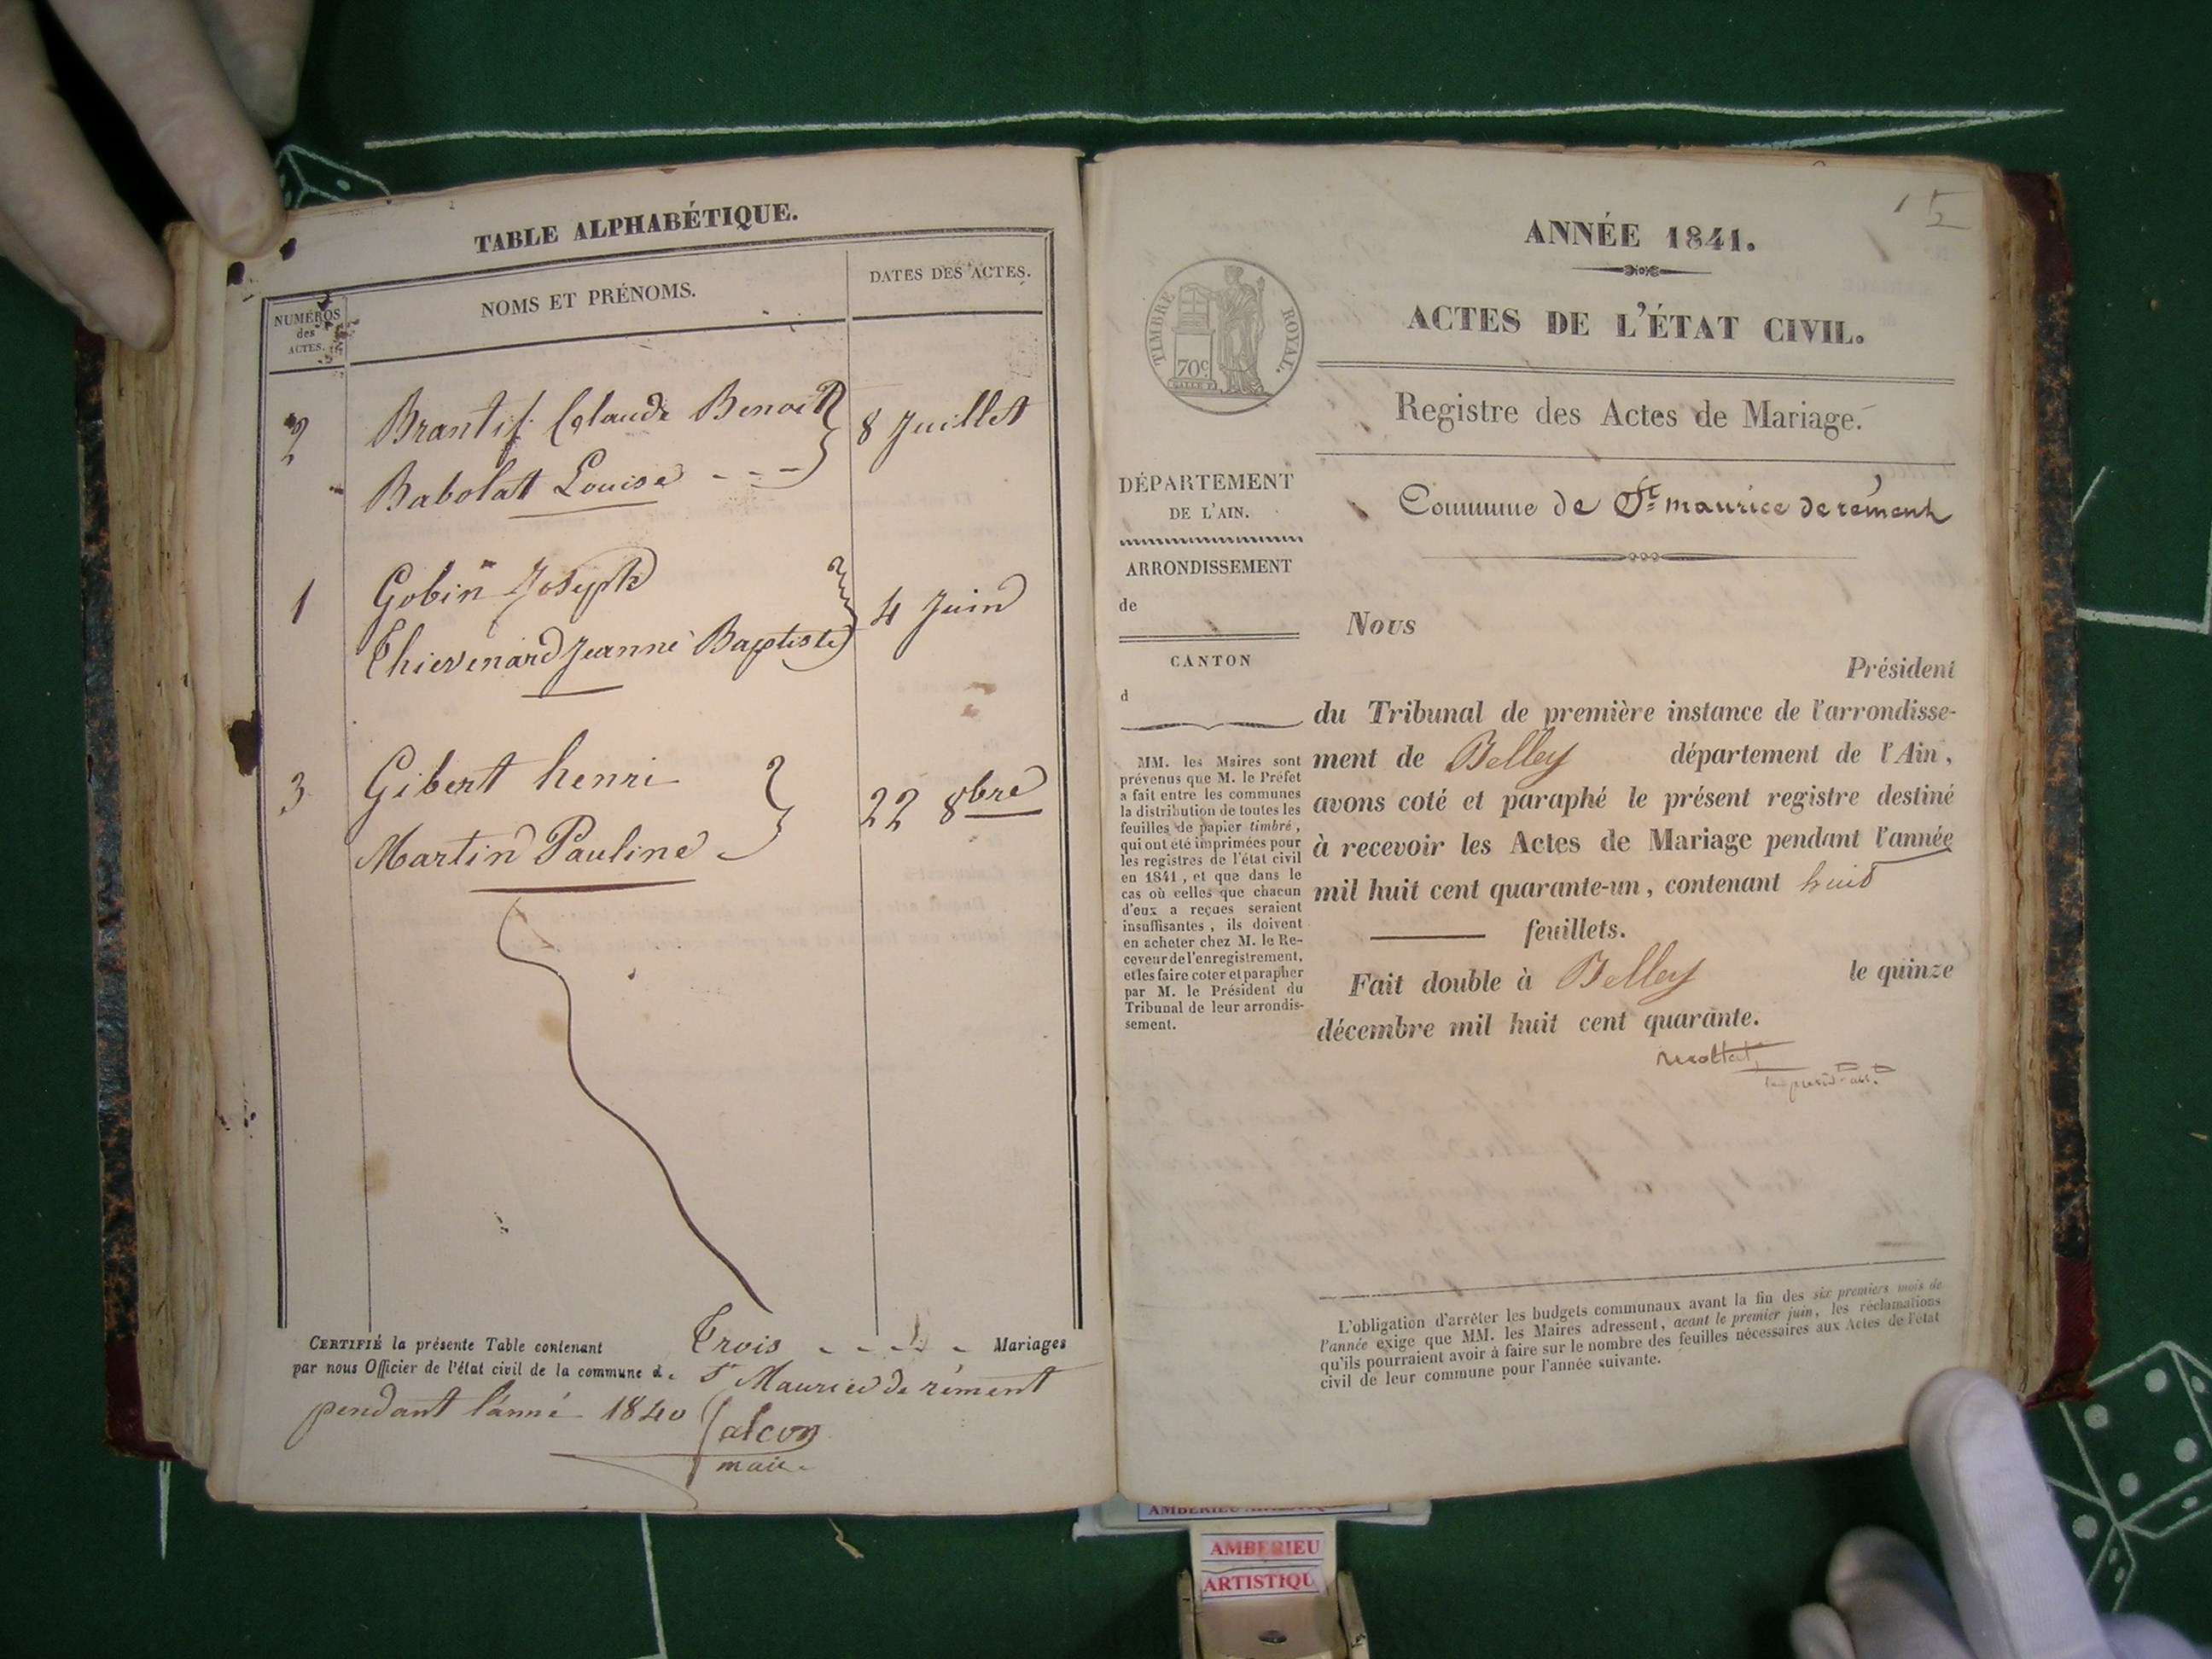 TABLE ALPHABÉTIQUE.
NUMÉROS
des
ACTES.
NOMS ET PRÉNOMS.
DATES DES ACTES.
2
Brantif Claude Benoit
8 Juillet
Babolat Louise
1
Gobin Joseph
4 Juin
Thievenard Jeanne Baptiste
3
Gibert henri
22 8bre
Martin Pauline
CERTIFIÉ la présente Table contenant Trois Mariages
par nous Officier de l'état civil de la commune de St Maurice de rément
pendant l'anné 1840
falcon
maire
15
ANNÉE 1841.
ACTES DE L'ÉTAT CIVIL.
TIMBRE ROYAL.
70c
Registre des Actes de Mariage.
DÉPARTEMENT
DE L'AIN.
Commune de St maurice de rément
ARRONDISSEMENT
de
CANTON
d
MM. les Maires sont
prévenus que M. le Préfet
a fait entre les communes
la distribution de toutes les
feuilles de papier timbré,
qui ont été imprimées pour
les registres de l'état civil
en 1841, et que dans le
cas où celles que chacun
d'eux a reçues seraient
insuffisantes, ils doivent
en acheter chez M. le Re-
ceveur de l'enregistrement,
et les faire coter et parapher
par M. le Président du
Tribunal de leur arrondis-
sement.
Nous
Président
du Tribunal de première instance de l'arrondisse-
ment de Belley département de l'Ain,
avons coté et paraphé le présent registre destiné
à recevoir les Actes de Mariage pendant l'année
mil huit cent quarante-un, contenant huit
feuillets.
Fait double à Belley le quinze
décembre mil huit cent quarante.
L'obligation d'arrêter les budgets communaux avant la fin des six premiers mois de
l'année exige que MM. les Maires adressent, avant le premier juin, les réclamations
qu'ils pourraient avoir à faire sur le nombre des feuilles nécessaires aux Actes de l'état
civil de leur commune pour l'année suivante.
AMBERIEU
ARTISTIQU